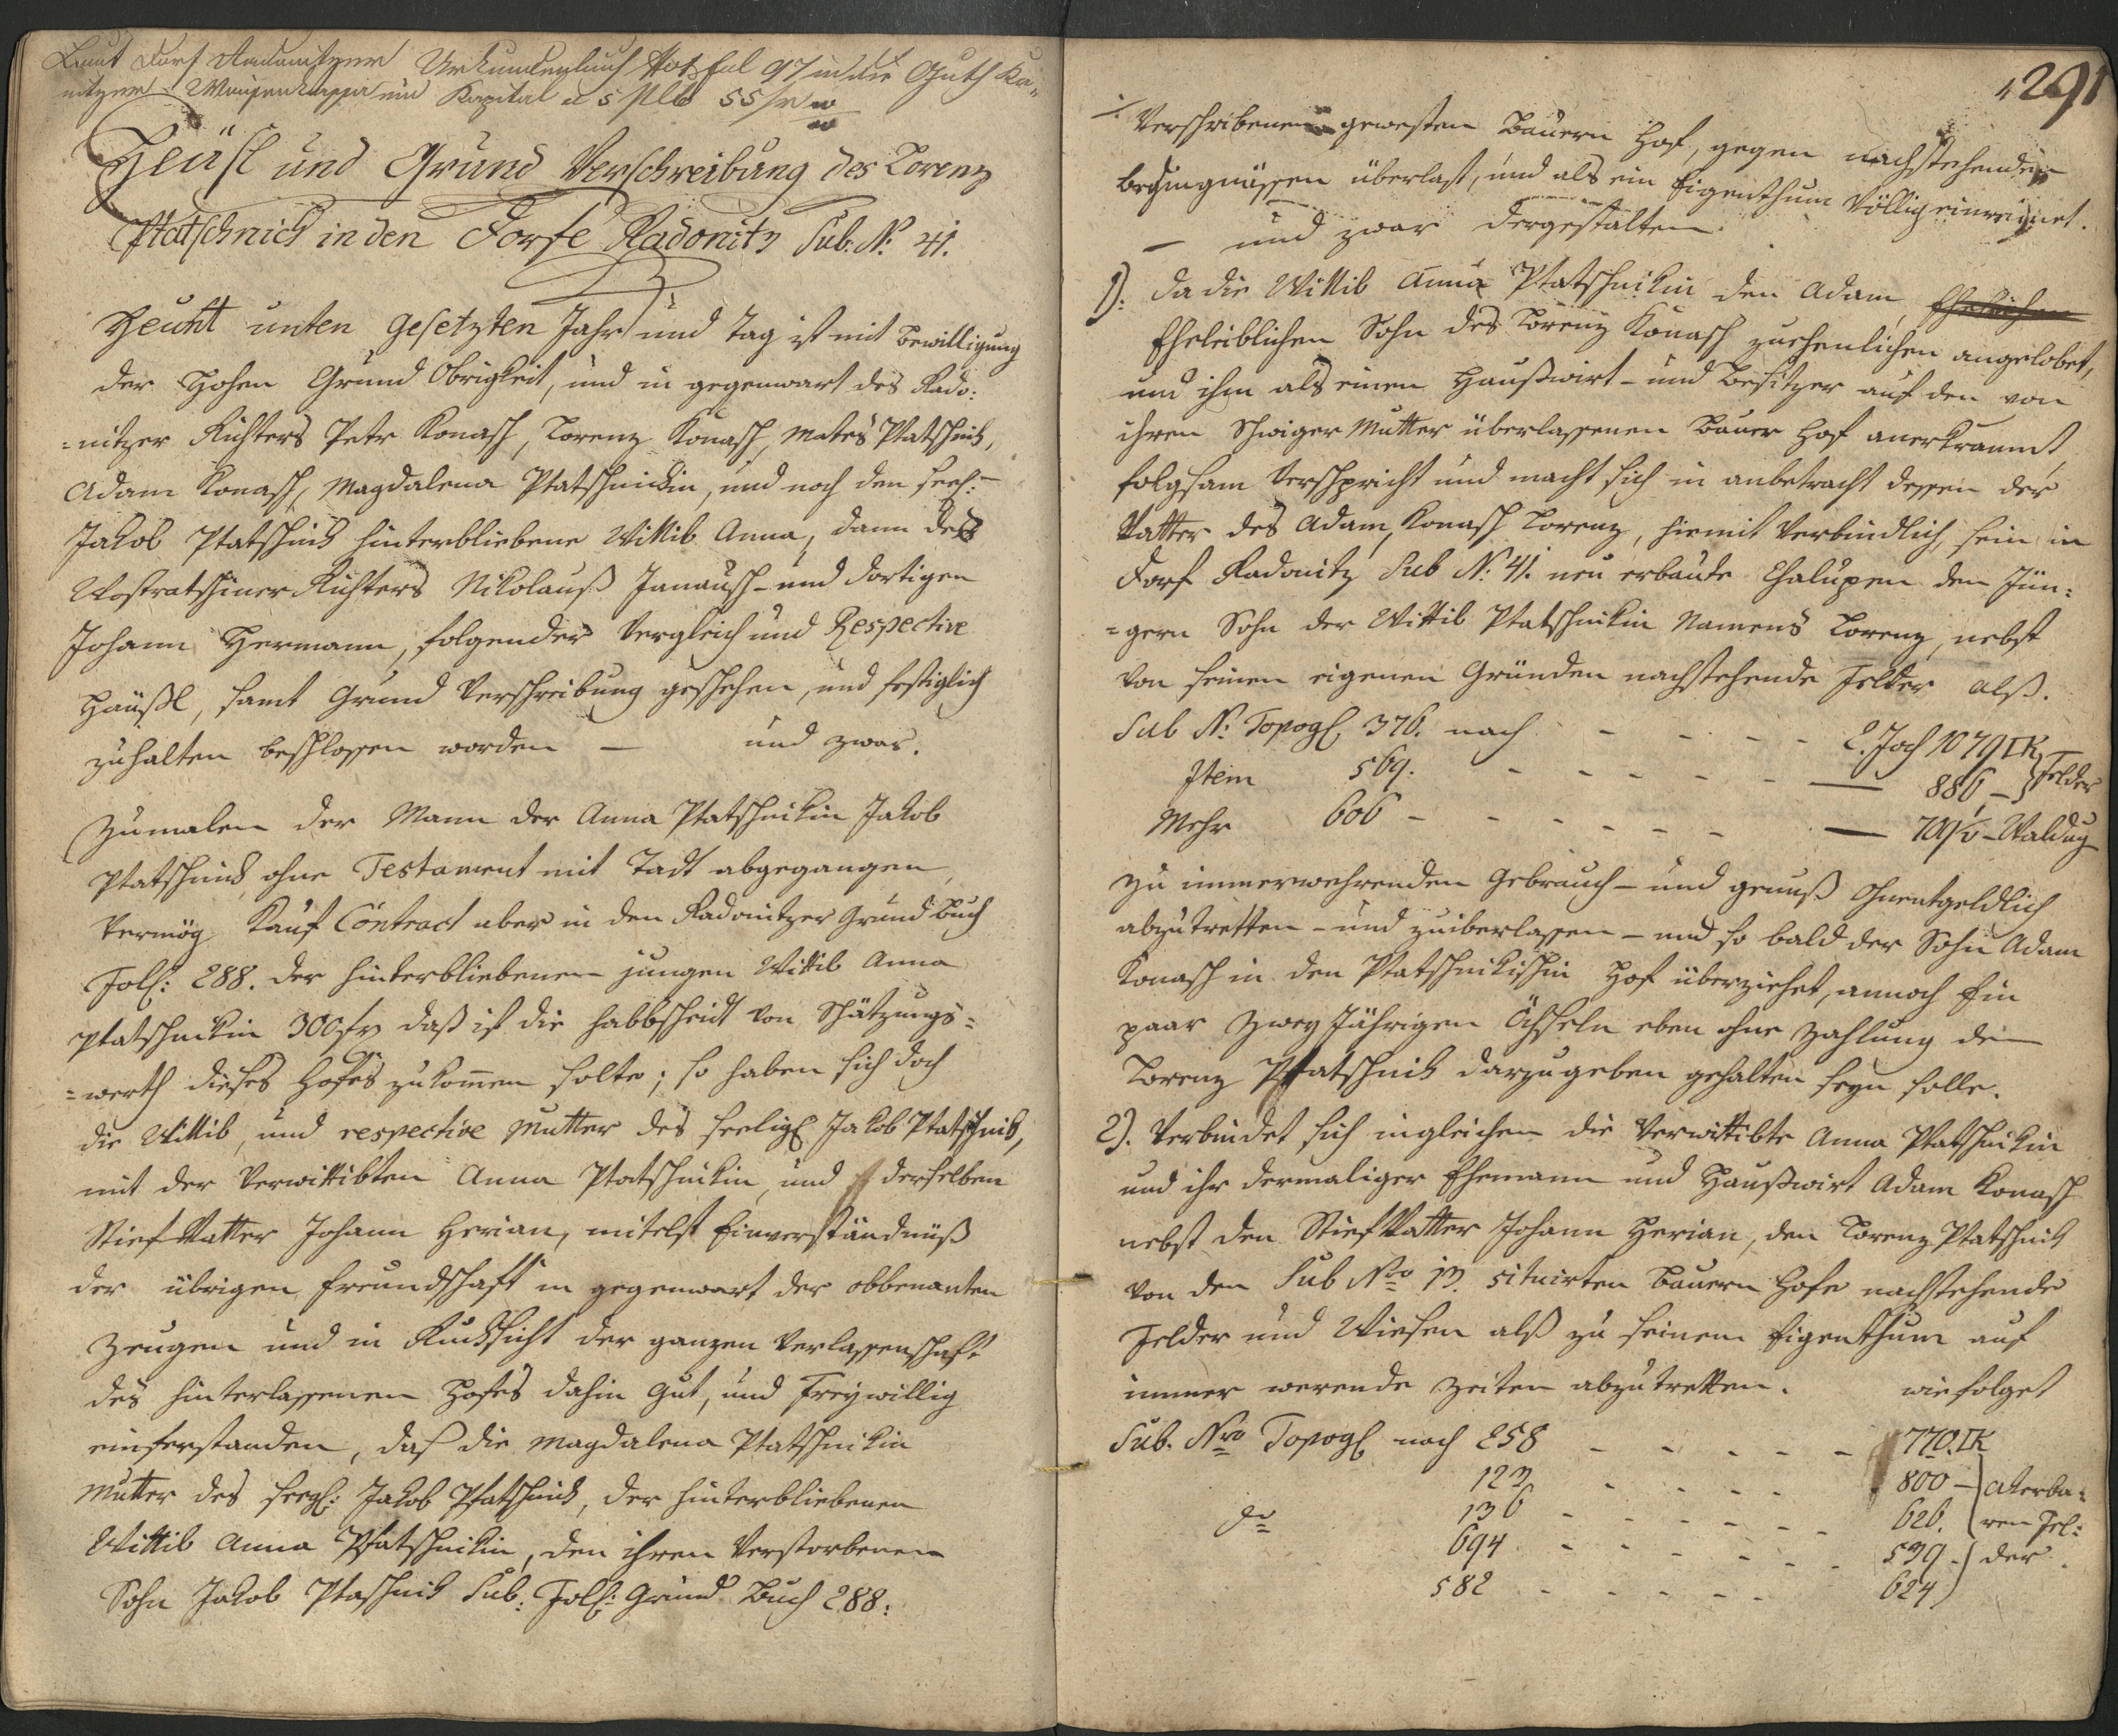 Laut Dorf Radonitzer Urkundenbuch Fol 97 in die Guth Ka-
nitzer Waisenkassa ein Kapital a 5 pCto 55 fr
Heüsl und Grund Verschreibung des Lorenz
Ptatschnick in den Dorfe Radonitz Sub. N: 41.
Heunt unten gesetzten Jahr und Tag ist mit Bewilligung
der Hohen Grund Obrigkeit, und in gegenwart des Rado:
=nitzer Richters Petr Konasch, Lorenz Konasch, Mates Ptatschnik,
Adam Konasch, Magdalena Ptatschnickin, und noch den seel:
Jakob Ptatschnik hinterbliebene Wittib Anna, dann des
Wostratschiner Richters Nikolauß Janausch - und dortigen
Johann Hermann, folgender Vergleich und Respective
Häußl, samt Grund Verschreibung geschehen, und festiglich
zuhalten beschlossen worden — und zwar.
Zumalen der Mann der Anna Ptatschnikin Jakob
Ptatschnick ohne Testament mit Tadt abgegangen,
Vermög Kauf Contract aber in den Radonitzer Grund Buch
Foll: 288. der hinterbliebenen jungen Wittib Anna
Ptatschnickin 300 fr daß ist die halbscheidt von Schätzungs=
=werth dieses Hofes zukommen solte; so haben sich doch
die Wittib, und respective Mutter des seelig Jakob Ptatschnik,
mit der Verwittibten Anna Ptatschnikin, und derselben
Stief Vatter Johann Herian, mitelst Einverständnüß
der übrigen freundschaft in gegenwart der obbenanten
Zeugen und in Rucksicht der ganzen Verlassenschaft
des hinterlassenen Hofes dahin Gut, und Freywillig
einferstanden, daß die Magdalena Ptatschnikin
Mutter des seel: Jakob Ptatschnick, der hinterbliebenen
Wittib Anna Ptatschnikin, den ihren Verstorbenen
Sohn Jakob Ptaschnik Sub: Foll: Grund Buch 288:
291
Verschribenen gewesten Bauern Hof, gegen nachstehenden
bedingnüssen überlast, und als ein Eigenthum Völlig einreignet.
— und zwar dergestalten
1): da die Wittib Anna Ptatschnikin den Adam, Ehelichen
Eheleiblichen Sohn des Lorenz Konasch zuehenlichen angelobet,
und ihm als einen Haußwirt - und Besitzer auf den von
ihren Schwiger Mutter überlassenen Bauer Hof anerkrannt,
folgsam Verspricht und macht sich in anbetracht dessen der
Vatter des Adam, Konasch Lorenz, hiemit Verbindlich, sein in
Dorf Radonitz Sub N: 41. neu erbaute Chalupen den Jün:
=gern Sohn der Wittib Ptatschnikin Namens Lorenz, nebst
Von seinen eigenen Gründen nachstehende Felder alß.
Sub N: Topog 376. nach - - - - 2. Joch 1079 □K
Item 569. - - - - - — 886 - Felder
Mehr 606 - - - - - - — 709½ - Waldug
zu immerwehrenden Gebrauch - und genuß Ohnentgeldlich
abzutretten - und zuiberlassen - und so bald der Sohn Adam
Konasch in den Ptatschnikischin Hof überziehet, annoch Ein
paar Zwey Jährigen Öchseln eben ohne Zahlung den
Lorenz Ptatschnik darzugeben gehalten seyn solle.
2). Verbindet sich ingleichen die Verwittibte Anna Ptatschnikin
und ihr dermaliger Ehemann und Haußwirt Adam Konasch
nebst den Stief Vatter Johann Herian, den Lorenz Ptatschnik
Von den Sub Nro 13. situirten Bauern Hofe nachstehende
Felder und Wiesen alß zu seinem Eigenthum auf
immer werende Zeiten abzutretten. wie folget
Sub. Nro Topog nach 258 - - - - - 770. □K
123 - - - - 800 - Akerba=
do 136 - - - - - - 626. ren Fel:
694 - - - - - - 539 - der
582 - - - - - 624